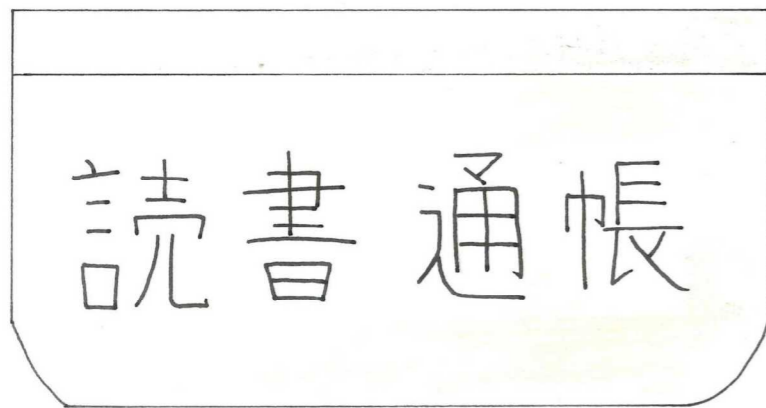 読書通帳